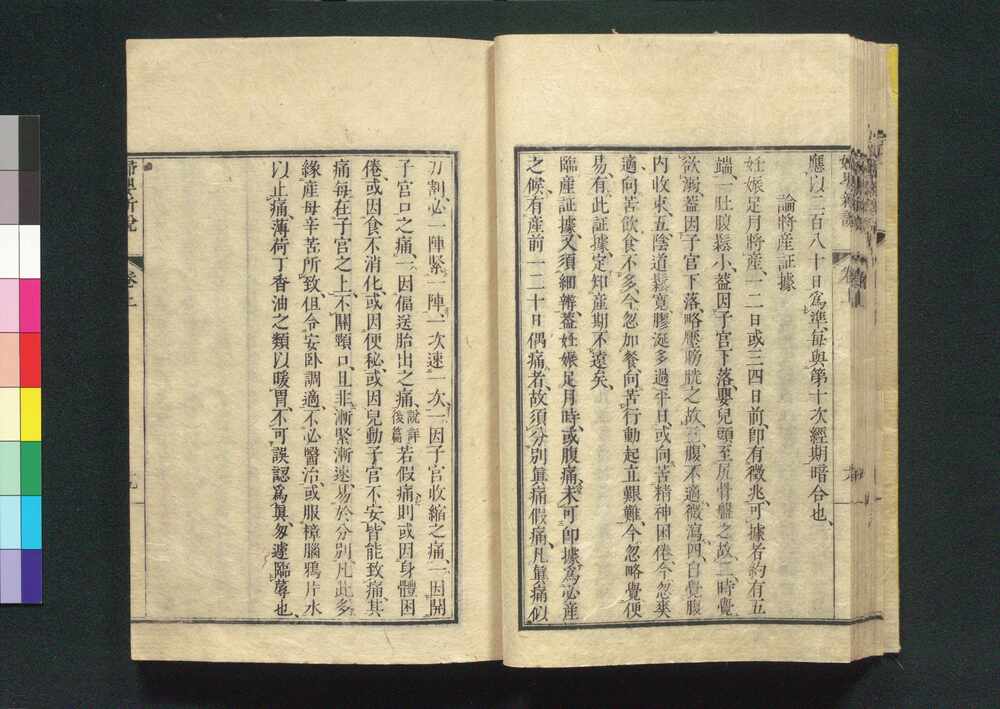 應以二百八十日爲準、每與第十次經期暗合也、
論將產証據
妊娠足月將產、一二日或三四日前、卽有徵兆、可據者約有五
端、一肚腹鬆小、蓋因子宮下落、嬰兒頭至尻骨盤之故、二時覺
欲溺、蓋因子宮下落、略壓膀胱之故、三腹不適微瀉、四自覺腹
內收束、五陰道鬆寬膠涎多過平日、或向苦精神困倦、今忽爽
適、向苦飲食不多、今忽加餐、向苦行動起立艱難、今忽略覺便
易、有此証據、定知產期不遠矣、
臨產証據、又須細辨、蓋妊娠足月時、或腹痛、未可卽據爲必產
之候、有產前一二十日偶痛者、故須分別眞痛假痛、凡眞痛似
刀割、必一陣緊一陣、一次速一次、一因子宮收縮之痛、一因開
子宮口之痛、一因偪送胎出之痛、說詳後篇若假痛則或因身體困
倦、或因食不消化、或因便秘、或因兒動子宮不安、皆能致痛、其
痛每在子宮之上、不關頸口、且非漸緊漸速、易於分別、凡此多
緣產母辛苦所致、但令安卧調適、不必醫治、或服樟腦鴉片水
以止痛、薄荷丁香油之類以暖胃、不可誤認爲眞、匆遽臨蓐也、
婦嬰新說
卷上